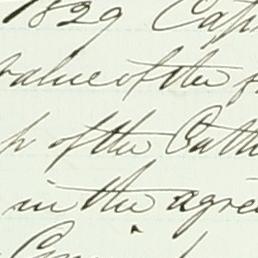 1829 Cap
value of the
of the Cath
in the agree